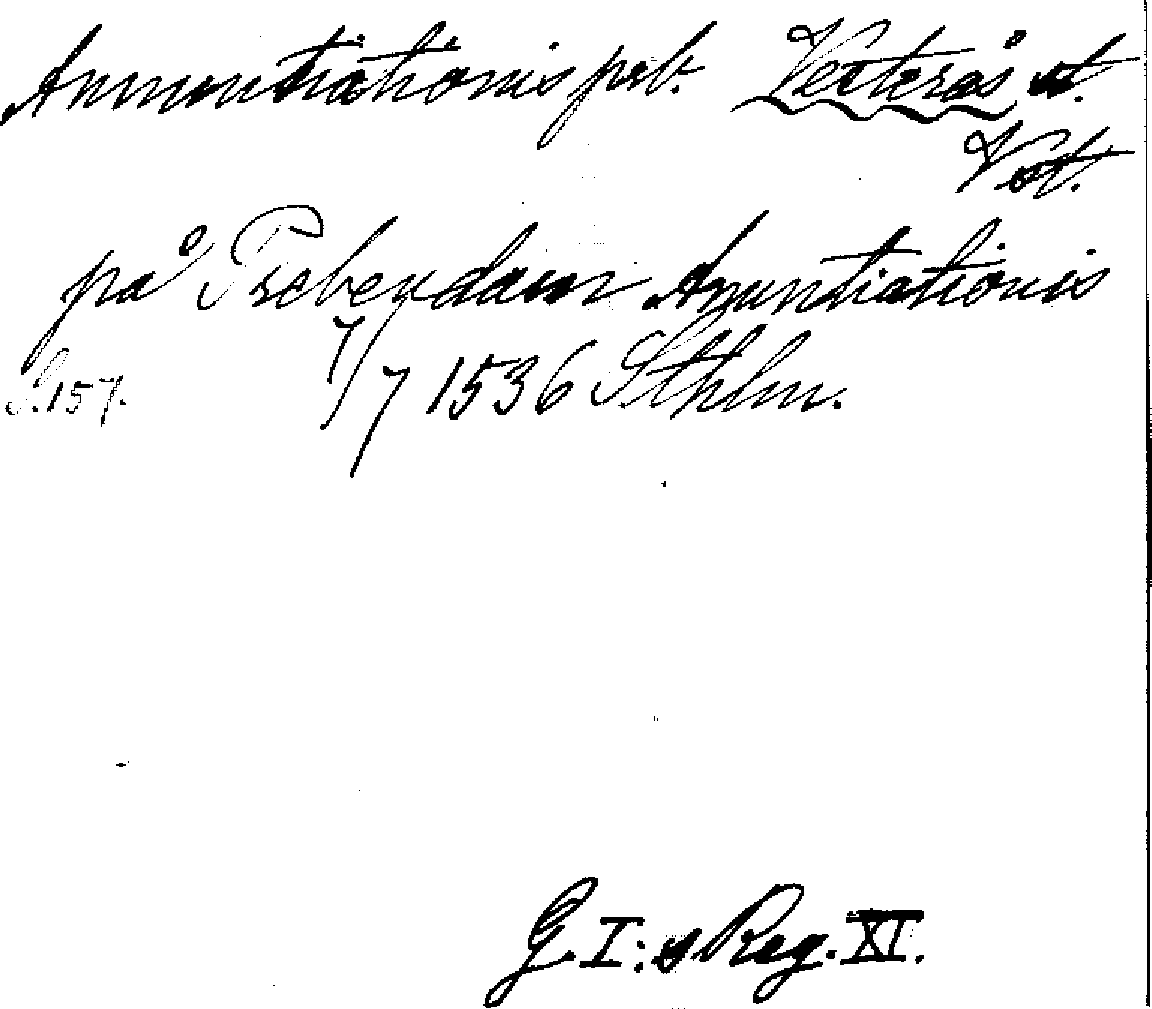 Annuntiationis preb. Västerås st.
Vst.
på Prebendam Anuntiationis
S. 157. 7/7 1536 Sthlm.
G. I:s Reg. XI.